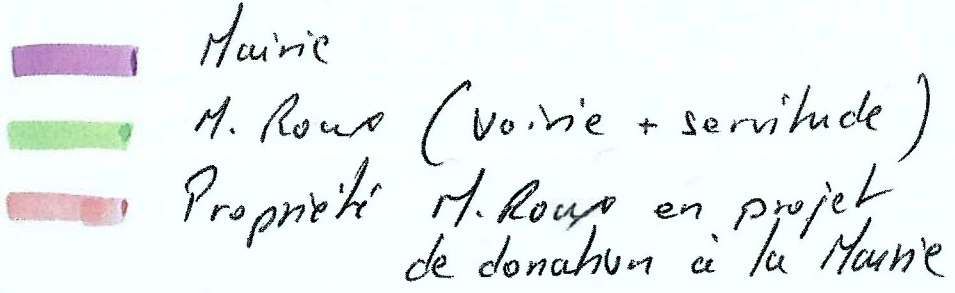 Mairie
M. Roux (Voirie + servitude)
Propriété M. Roux en projet
de donation à la Mairie